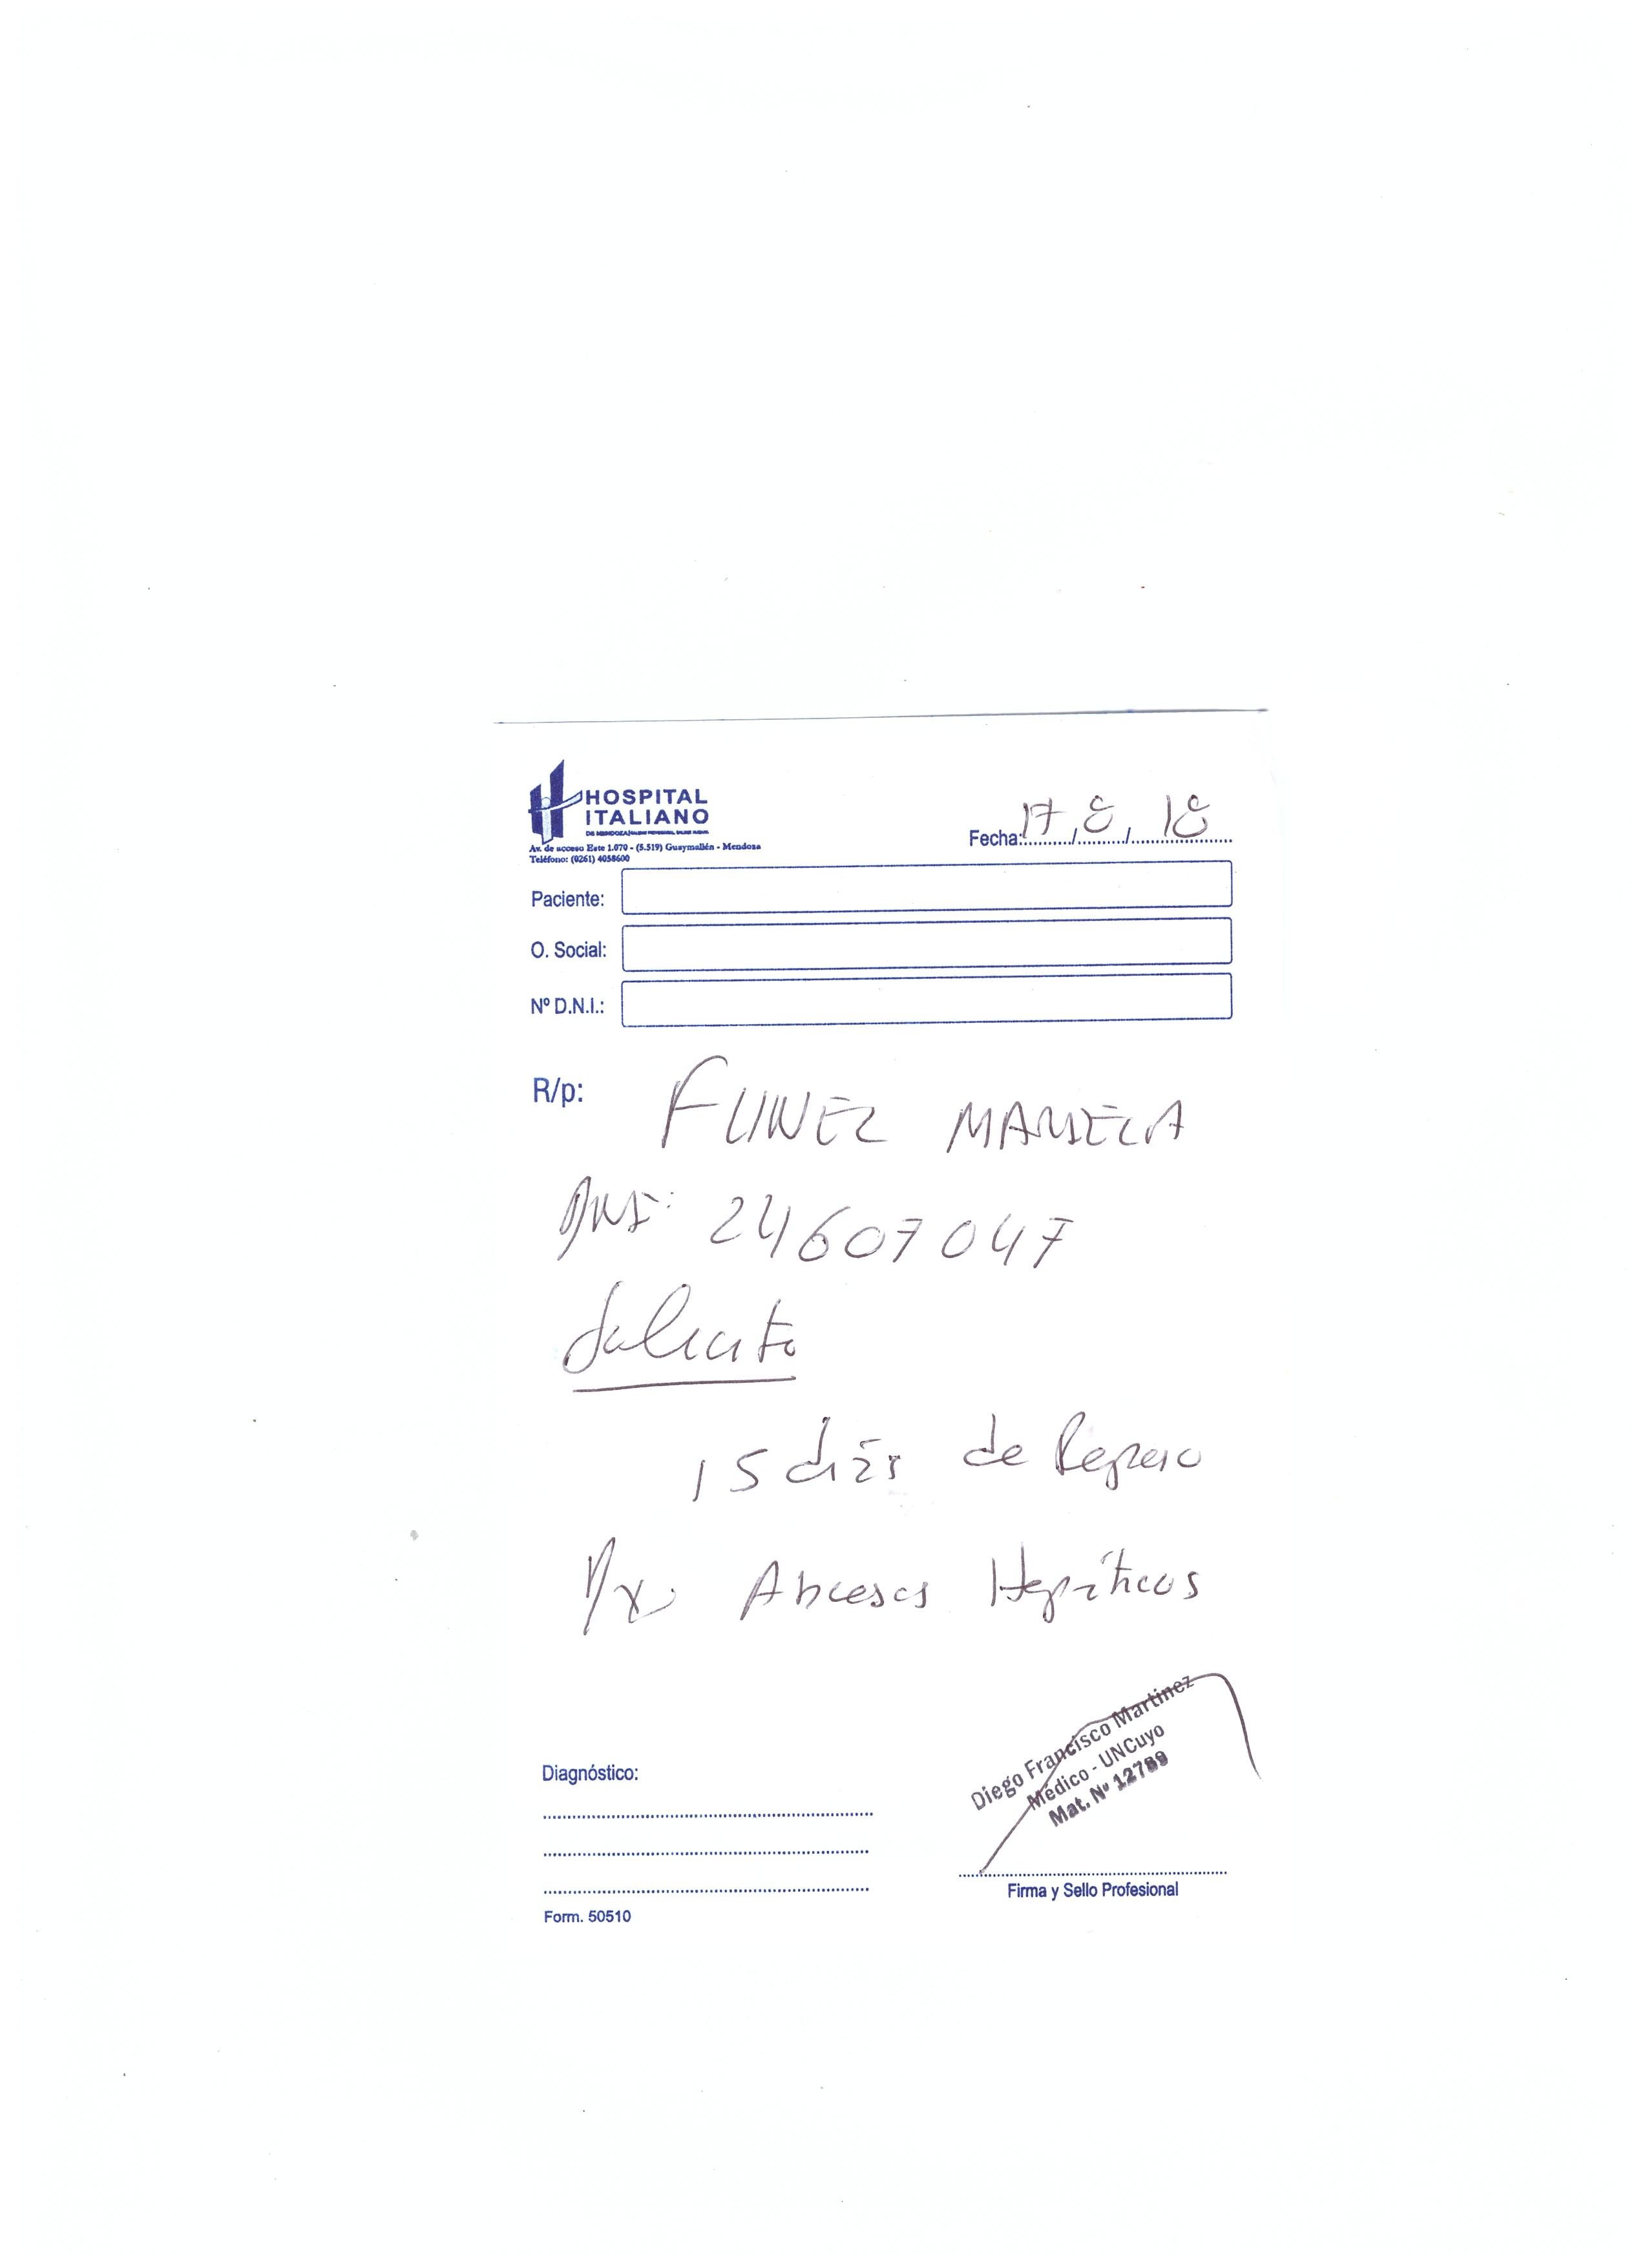 HOSPITAL
ITALIANO
Av. de acceso Este 1.070 - (5.519) Guaymallén - Mendoza
Teléfono: (0261) 4058600
Fecha: 17/8/18
Paciente:
O. Social:
Nº D.N.I.:
R/p: FUNEZ MARIELA
DNI: 24607047
Solicito
15 días de Reposo
P/x Abcesos Hepáticos
Diego Francisco Martinez
Médico - UNCuyo
Mat. Nº 12789
Diagnóstico:
Firma y Sello Profesional
Form. 50510